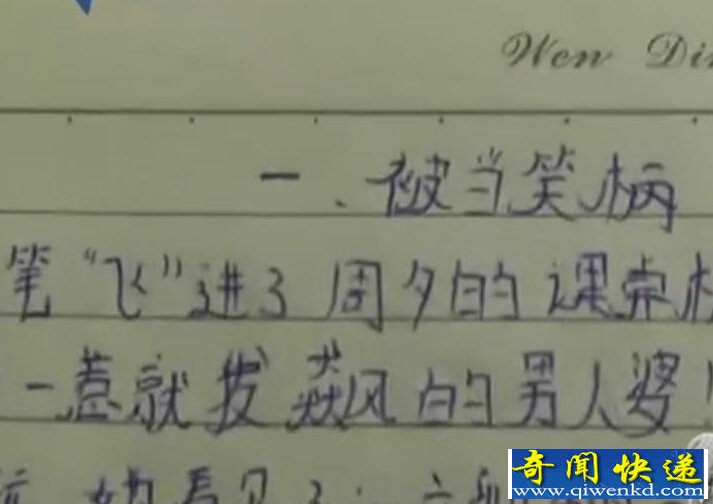 Wen Di
一、被当笑柄
笔“飞”进了周夕的课桌
一惹就发飙风的男人婆！
她看见了
奇闻快递
www.qiwenkd.com